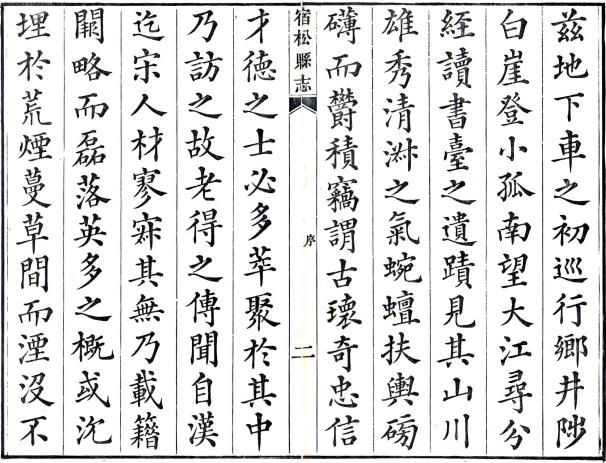 茲地下車之初巡行鄉井陟
白崖登小孤南望大江尋分
經讀書臺之遺蹟見其山川
雄秀清淑之氣蜿蟺扶輿磅
礴而欝積竊謂古瓌奇忠信
宿松縣志 序 二
才德之士必多萃聚於其中
乃訪之故老得之傳聞自漢
迄宋人材寥寂其無乃載籍
闕略而磊落英多之概或沉
埋於荒煙蔓草間而湮沒不